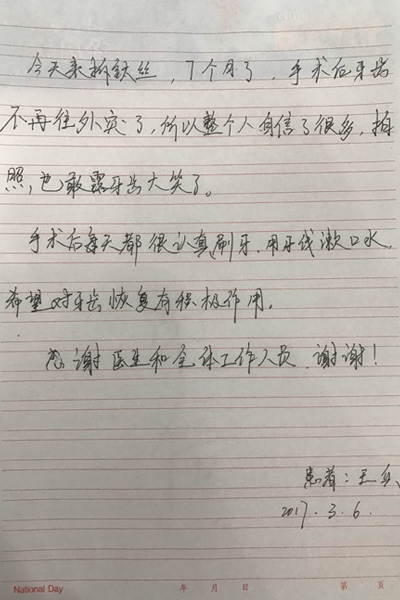 今天来拆钢丝，7个月了，手术后牙齿
不再往外突了，所以整个人自信了很多，拍
照，也敢露牙齿大笑了。
手术后每天都很认真刷牙、用牙线漱口水，
希望对牙齿恢复有积极作用。
感谢医生和全体工作人员、谢谢！
患者：王
2017.3.6.
National Day
年 月 日
第 页